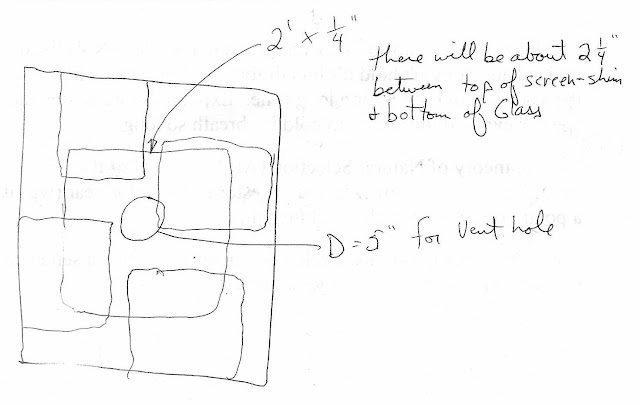 2' x 1/4"
there will be about 2 1/4"
between top of screen-shim
& bottom of Glass
D = 5" for Vent hole
theory of Natural Selection